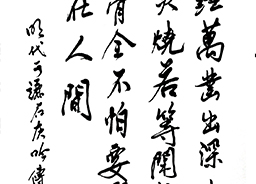 萬凿出深
火燒若等閒
骨全不怕要
在人間
明代于谦石灰吟